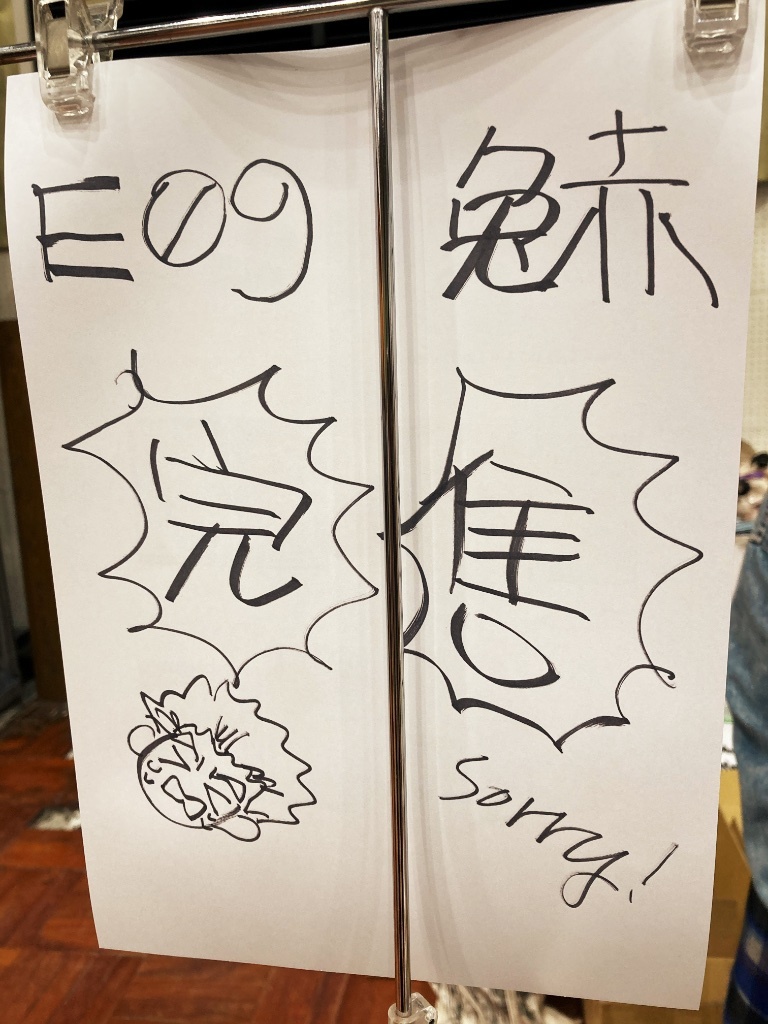 E09 兔赤
完售
Sorry!